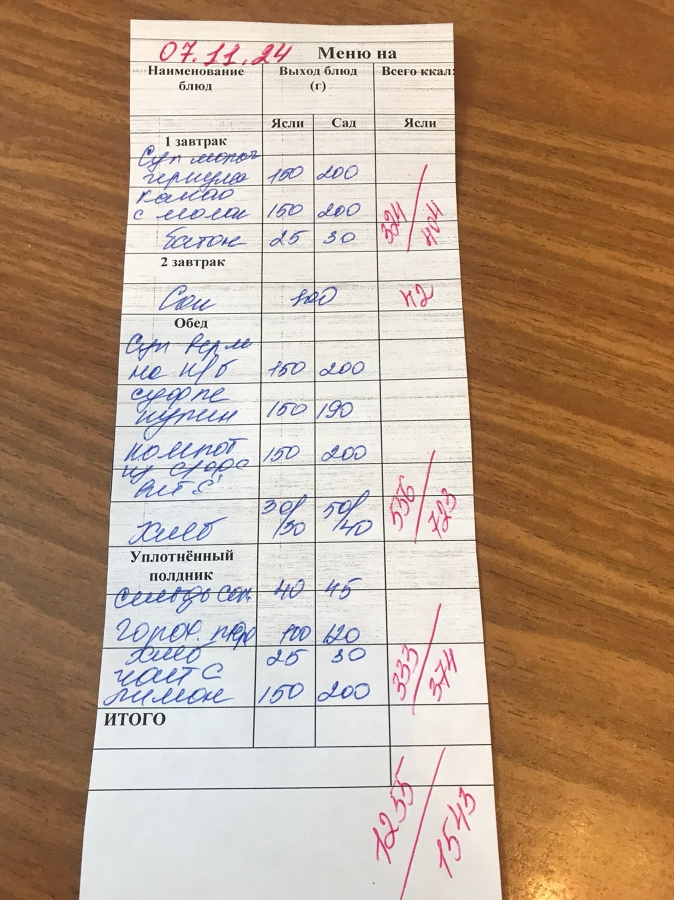 07.11.24 Меню на
Наименование Выход блюд Всего ккал:
блюд (г)
Ясли Сад Ясли
1 завтрак
Суп молоч
геркулес 150 200
какао
с молок 150 200 324/404
батон 25 30
2 завтрак
Сок 100 42
Обед
Суп верм
на к/б 150 200
суфле
курин 150 190
компот 150 200
из
вит С 556/723
30/ 50/
хлеб /30 /40
Уплотнённый
полдник
сельдь сол 40 45
горох. пюре 100 120
хлеб 25 30 333/374
чай с
лимон 150 200
ИТОГО
1255/1543